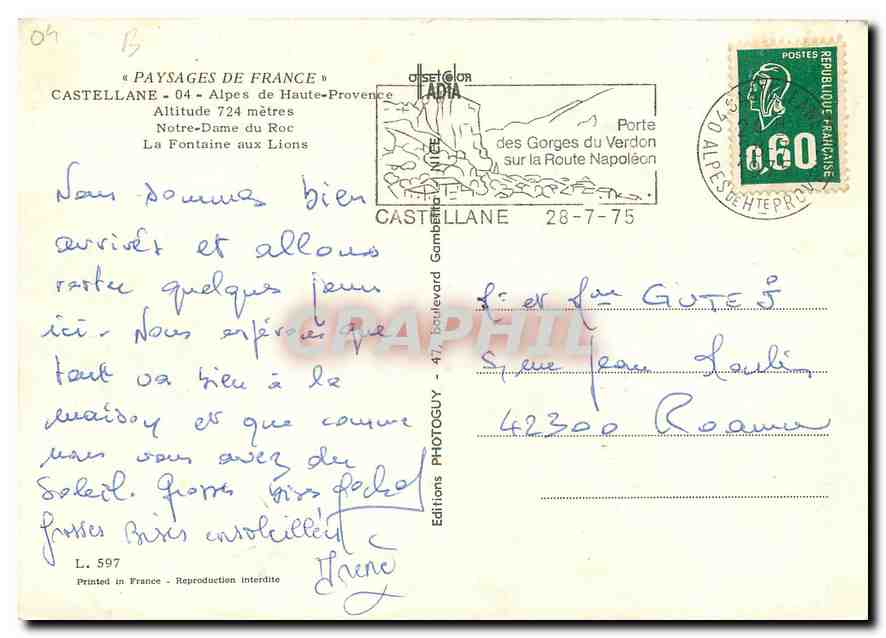 04
B
« PAYSAGES DE FRANCE »
CASTELLANE - 04 - Alpes de Haute-Provence
Altitude 724 mètres
Notre-Dame du Roc
La Fontaine aux Lions
Nous sommes bien
arrivés et allons
rester quelques jours
ici. Nous espérons que
tout va bien à la
maison et que comme
nous vous avez du
Soleil. Grosses bises
Grosses Bises ensoleillées
Irène
L. 597
Printed in France - Reproduction interdite
OFFSET COLOR
ADIA
Editions PHOTOGUY - 47, boulevard Gambetta - NICE
Porte
des Gorges du Verdon
sur la Route Napoléon
CASTELLANE 28-7-75
POSTES
REPUBLIQUE FRANÇAISE
0,60
04 ALPES DE HTE PROV
Mr et Mme GUTEJ
5, rue Jean Moulin
42300 Roanne
CPAPHIL